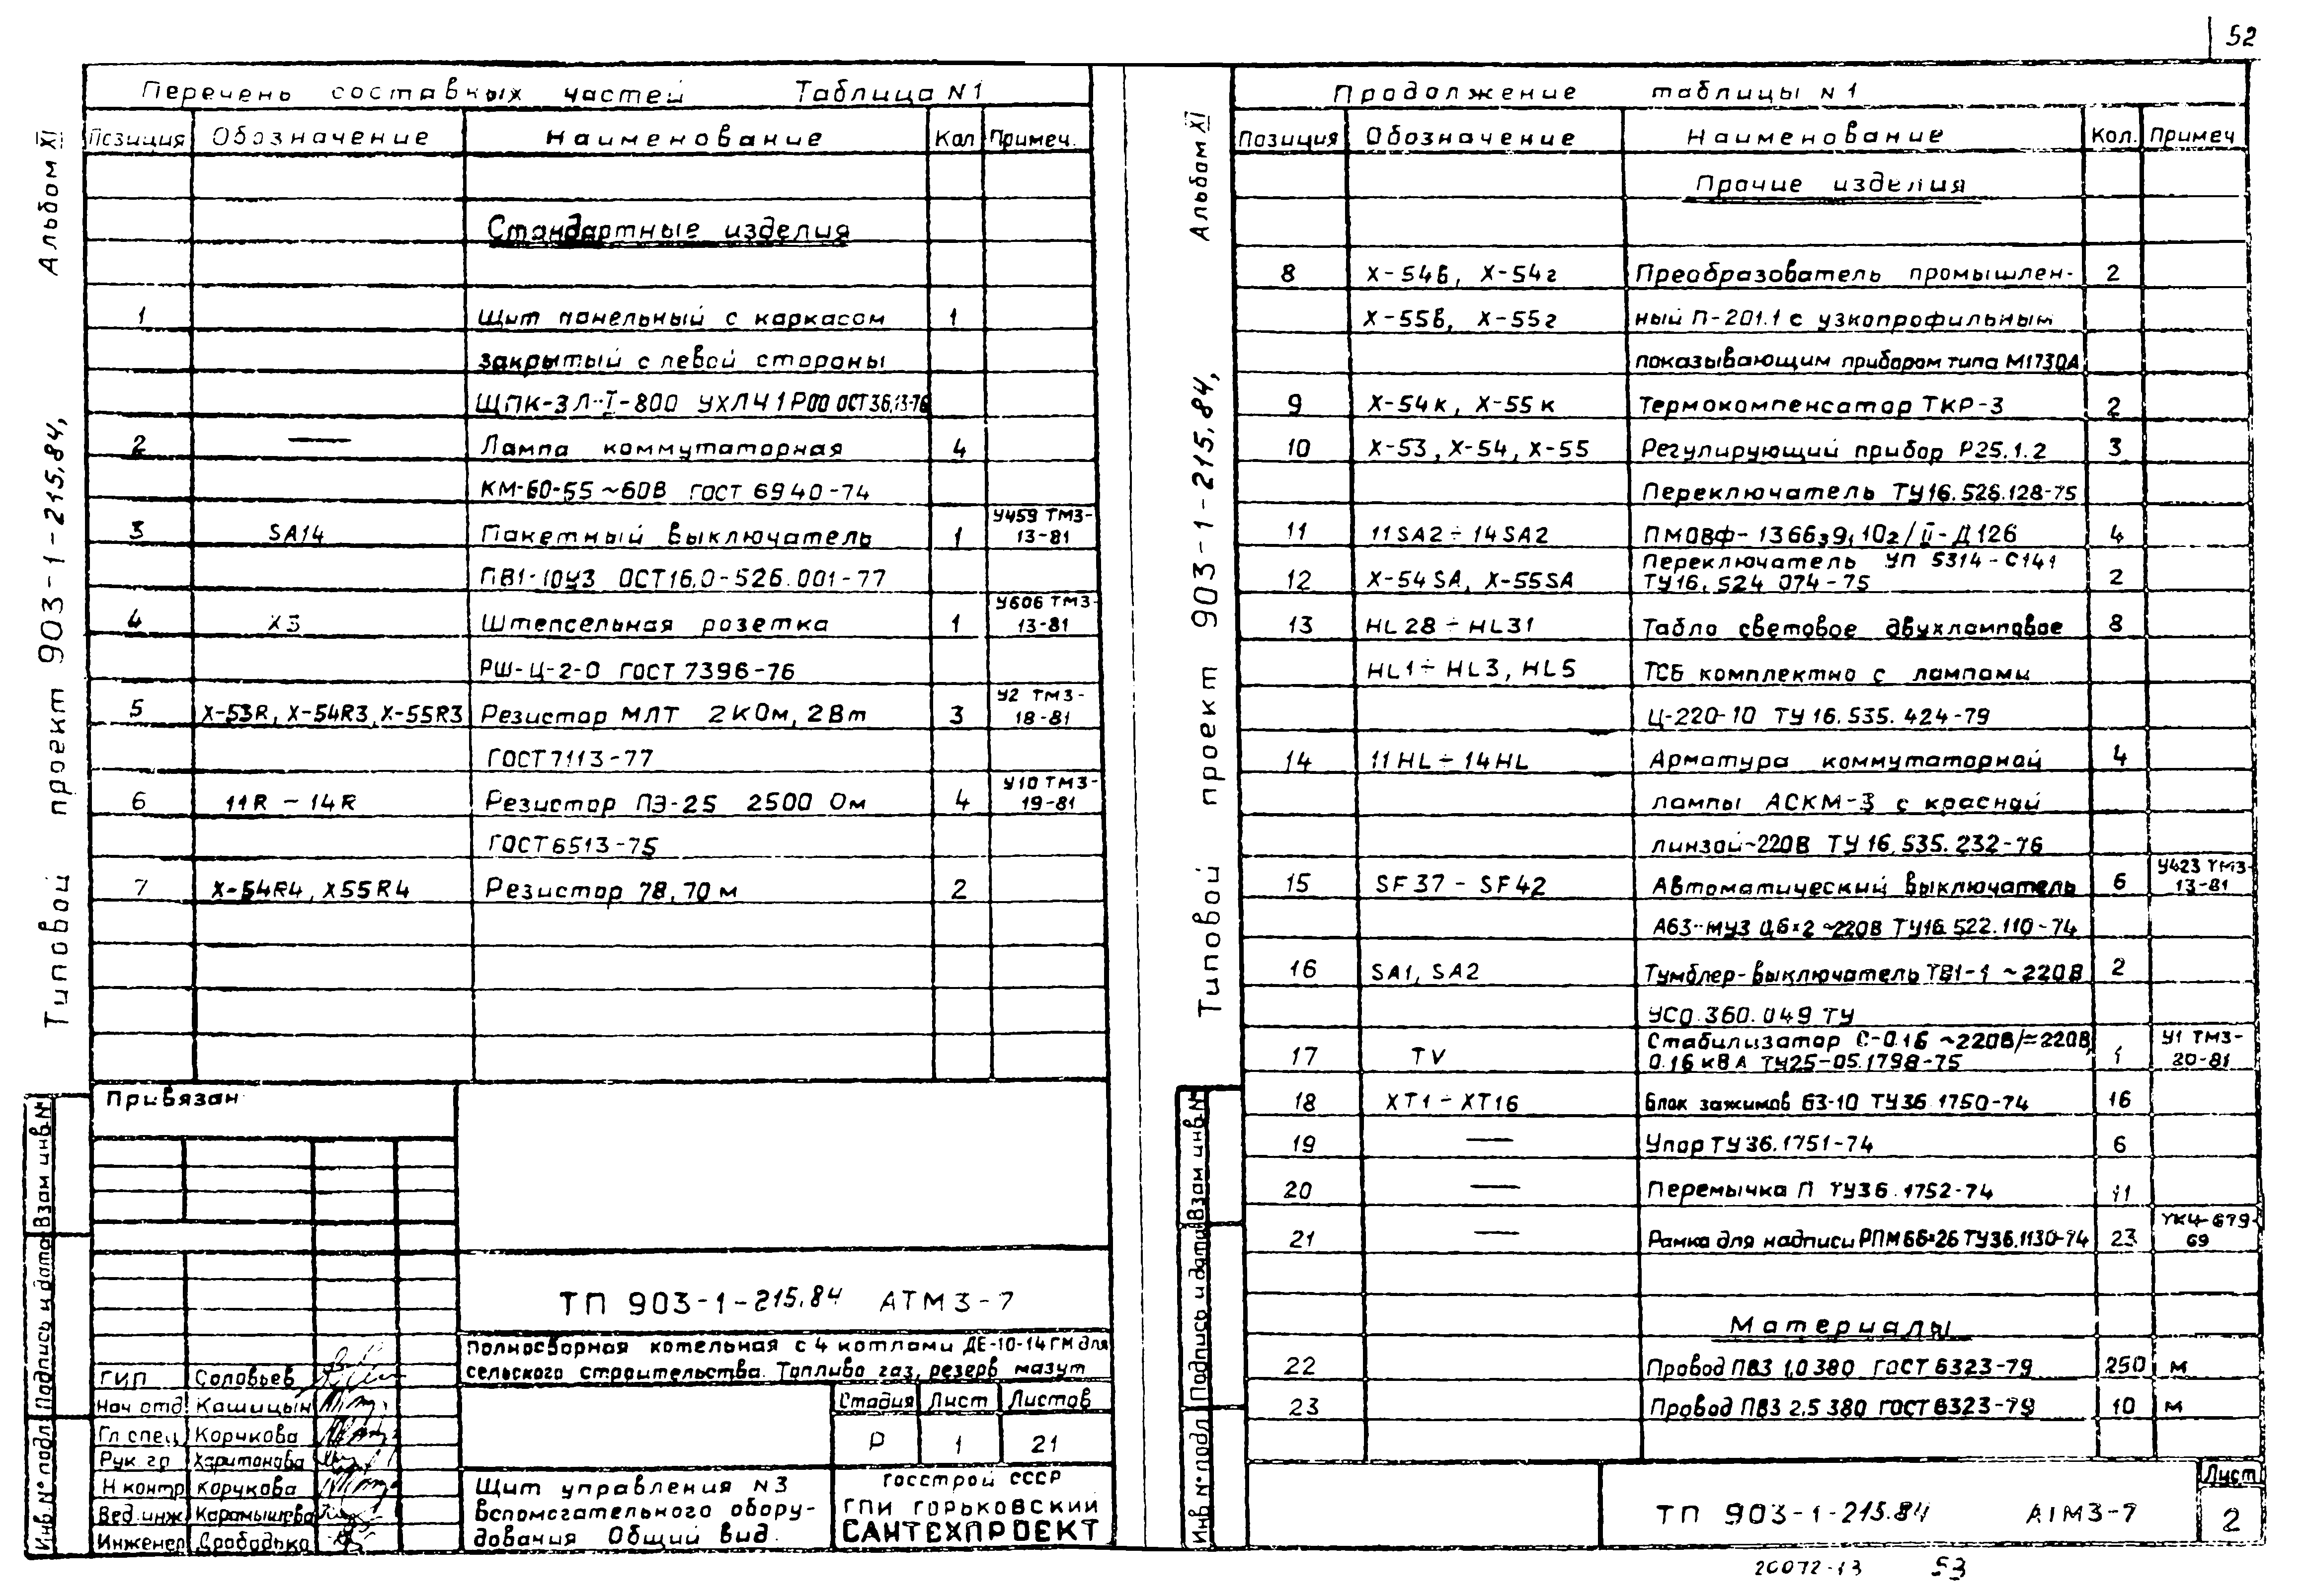 52
Альбом XI
Типовой проект 903-1-215.84,
Перечень составных частей Таблица N1
Позиция Обозначение Наименование Кол Примеч.
Стандартные изделия
1 Щит панельный с каркасом 1
закрытый с левой стороны
ЩПК-3Л-I-800 УХЛЧ1Р00 ОСТ36.13-76
2 — Лампа коммутаторная 4
КМ-60-55 ~60В ГОСТ 6940-74
3 SA14 Пакетный выключатель 1 У459 ТМ3-13-81
ПВ1-10У3 ОСТ16.0-526.001-77
4 X3 Штепсельная розетка 1 У606 ТМ3-13-81
РШ-Ц-2-0 ГОСТ 7396-76
5 X-53R, X-54R3, X-55R3 Резистор МЛТ 2КОм, 2Вт 3 У2 ТМ3-18-81
ГОСТ7113-77
6 11R ~ 14R Резистор ПЭ-25 2500 Ом 4 У10 ТМ3-19-81
ГОСТ6513-75
7 X-54R4, X55R4 Резистор 78,7Ом 2
Привязан
ТП 903-1-215.84 АТМ3-7
Полносборная котельная с 4 котлами ДЕ-10-14ГМ для
сельского строительства. Топливо газ, резерв мазут
Стадия Лист Листов
Р 1 21
ГИП Соловьев
Нач отд Кашицын
Гл спец Корчкова
Рук гр Харитонова
Н контр Корчкова
Вед. инж Карамышева
Инженер Слободько
Щит управления N3
вспомогательного обору-
дования Общий вид.
Госстрой СССР
ГПИ ГОРЬКОВСКИЙ
САНТЕХПРОЕКТ
Взам инв N
Подпись и дата
Инв N° подл
Альбом XI
Типовой проект 903-1-215.84,
Продолжение таблицы N1
Позиция Обозначение Наименование Кол. Примеч
Прочие изделия
8 X-54в, X-54г Преобразователь промышлен- 2
X-55в, X-55г ный П-201.1 с узкопрофильным
показывающим прибором типа М1730А
9 X-54к, X-55к Термокомпенсатор ТКР-3 2
10 X-53, X-54, X-55 Регулирующий прибор Р25.1.2 3
Переключатель ТУ16.526.128-75
11 11SA2 ÷ 14SA2 ПМОВФ-136639,102/II-Д126 4
12 X-54SA, X-55SA Переключатель УП 5314-С141 2
ТУ16.524 074-75
13 HL28 ÷ HL31 Табло световое двухламповое 8
HL1 ÷ HL3, HL5 ТСБ комплектно с лампами
Ц-220-10 ТУ16.535.424-79
14 11HL ÷ 14HL Арматура коммутаторной 4
лампы АСКМ-3 с красной
линзой ~220В ТУ16.535.232-76
15 SF37 - SF42 Автоматический выключатель 6 У423 ТМ3-13-81
А63-МУ3 0,6×2 ~220В ТУ16.522.110-74
16 SA1, SA2 Тумблер-выключатель ТВ1-1 ~220В 2
УСО.360.049 ТУ
17 TV Стабилизатор С-0.16 ~220В/=220В, 1 У1 ТМ3-20-81
0.16кВА ТУ25-05.1798-75
18 XT1 ÷ XT16 Блок зажимов БЗ-10 ТУ36 1750-74 16
19 — Упор ТУ36.1751-74 6
20 — Перемычка П ТУ36.1752-74 11
21 — Рамка для надписи РПМ66×26 ТУ36.1130-74 23 УК4-679-69
Материалы
22 Провод ПВ3 1,0 380 ГОСТ 6323-79 250 м
23 Провод ПВ3 2.5 380 ГОСТ 6323-79 10 м
Взам инв N
Подпись и дата
Инв N° подл
ТП 903-1-215.84 АТМ3-7
Лист
2
20072-13 53